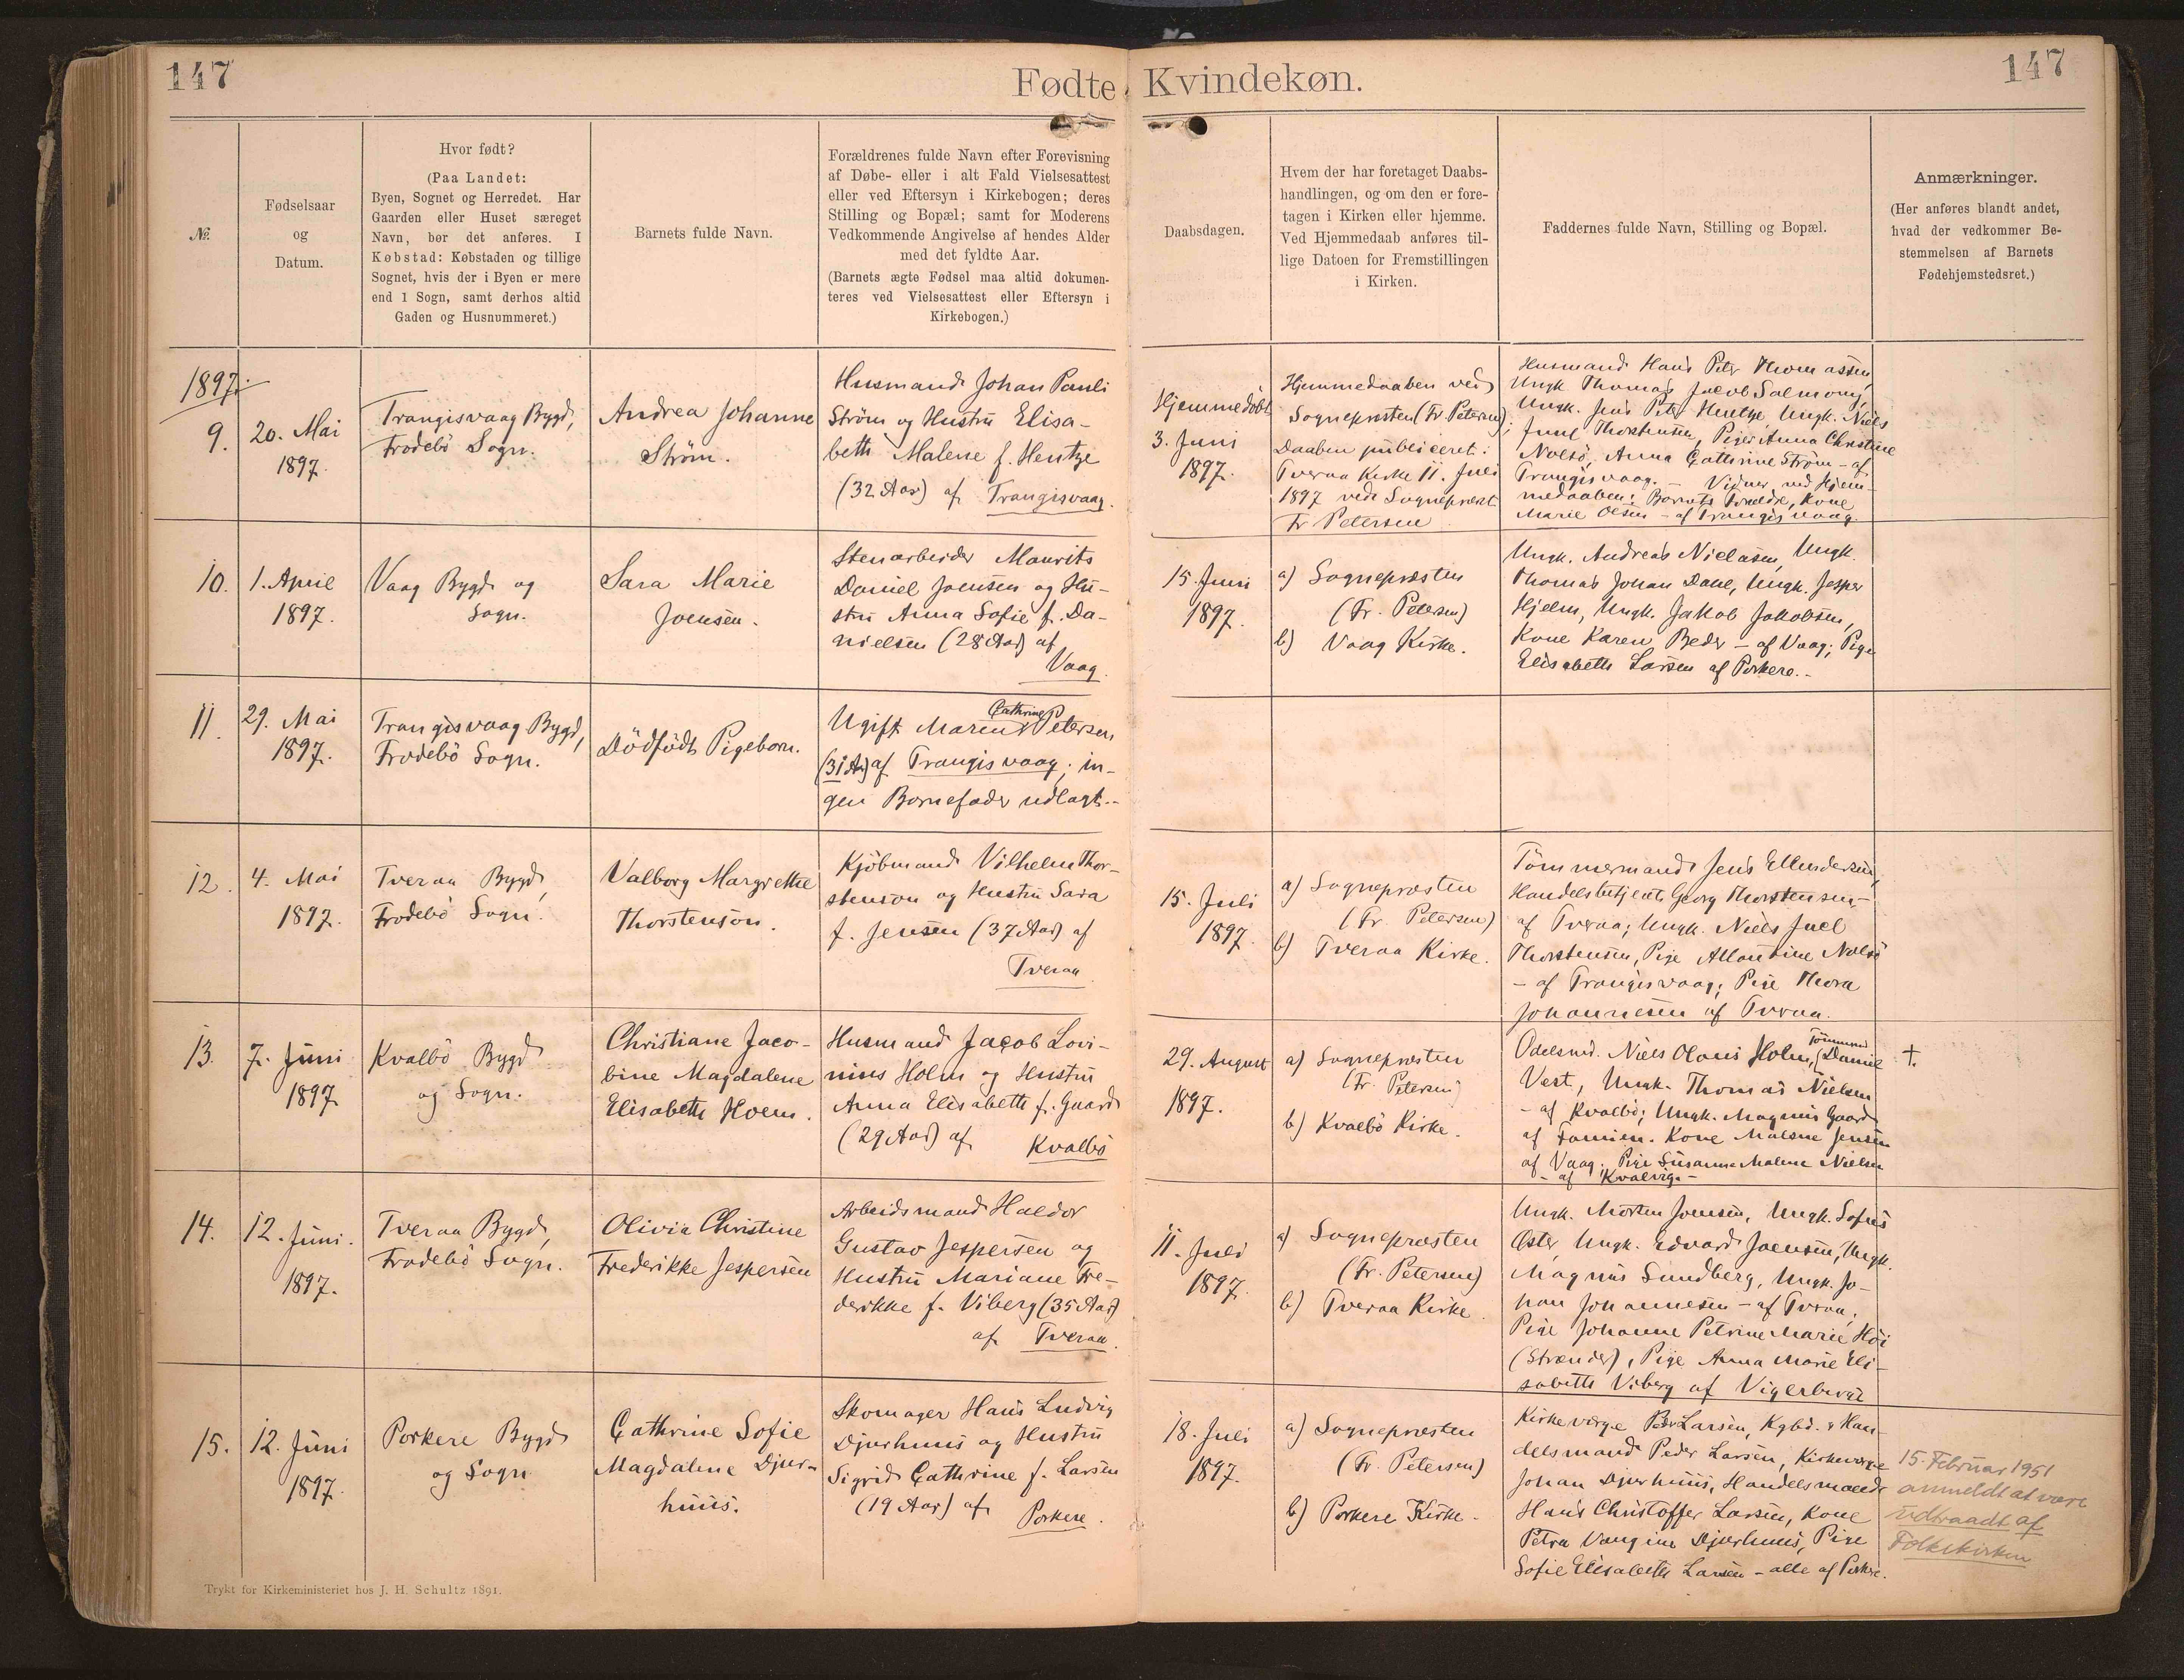 147
Fødte Kvindekøn.
147
№
Fødselsaar
og
Datum.
Hvor født?
(Paa Landet:
Byen, Sognet og Herredet. Har
Gaarden eller Huset særeget
Navn, bør det anføres. I
Købstad: Købstaden og tillige
Sognet, hvis der i Byen er mere
end 1 Sogn, samt derhos altid
Gaden og Husnummeret.)
Barnets fulde Navn.
Forældrenes fulde Navn efter Forevisning
af Døbe- eller i alt Fald Vielsesattest
eller ved Eftersyn i Kirkebogen; deres
Stilling og Bopæl; samt for Moderens
Vedkommende Angivelse af hendes Alder
med det fyldte Aar.
(Barnets ægte Fødsel maa altid dokumen-
teres ved Vielsesattest eller Eftersyn i
Kirkebogen.)
Daabsdagen.
Hvem der har foretaget Daabs-
handlingen, og om den er fore-
tagen i Kirken eller hjemme.
Ved Hjemmedaab anføres til-
lige Datoen for Fremstillingen
i Kirken.
Faddernes fulde Navn, Stilling og Bopæl.
Anmærkninger.
(Her anføres blandt andet,
hvad der vedkommer Be-
stemmelsen af Barnets
Fødehjemstedsret.)
1897.
9.
20. Mai
1897.
Trangisvaag Bygd,
Frodebö Sogn.
Andrea Johanne
Ström.
Husmand Johan Pauli
Ström og Hustru Elisa-
beth Malene f. Hentze
(32 Aar) af Trangisvaag.
Hjemmedöbt
3. Juni
1897.
Hjemmedaaben ved
Sognepræsten (Fr. Petersen);
Daaben publiceret i
Tveraa Kirke 11. Juli
1897 ved Sognepræst
Fr Petersen
Husmand Hans Peter Thomassen,
Ungk. Thomas Jacob Salmony,
Ungk. Jens Peter Hentze Ungk. Niels
Juul Thorstensen, Piger Anna Christine
Nolsö, Anna Cathrine Ström - af
Trangisvaag. - Vidner ved Hjem-
medaaben: Barnets Forældre, Kone
Marie Olsen - af Trangisvaag.
10.
1. April
1897.
Vaag Bygd og
Sogn.
Sara Marie
Joensen.
Stenarbeider Maurits
Daniel Joensen og Hu-
stru Anna Sofie f. Da-
nielsen (28 Aar) af
Vaag.
15. Juni
1897.
a) Sognepræsten
(Fr. Petersen)
b) Vaag Kirke.
Ungk. Andreas Nielasen, Ungk.
Thomas Johan Dahl, Ungk. Jesper
Hjelm, Ungk. Jakob Jakobsen,
Kone Karen Beder - af Vaag; Pige
Elisabeth Larsen af Porkere. -
11.
29. Mai
1897.
Trangisvaag Bygd,
Frodebö Sogn.
Dödfödt Pigebarn.
Cathrine
Ugift Maren Petersen
(31 Aar) af Trangisvaag; in-
gen Barnefader udlagt. -
12.
4. Mai
1897.
Tveraa Bygd,
Frodebö Sogn.
Valborg Margrethe
Thorstenson.
Kjöbmand Vilhelm Thor-
stenson og Hustru Sara
f. Jensen (37 Aar) af
Tveraa
15. Juli
1897.
a) Sognepræsten
(Fr. Petersen)
b) Tveraa Kirke.
Tömmermand Jens Ellendersen,
Handelsbetjent Georg Thorstensen -
af Tveraa; Ungk. Niels Juel
Thorstensen, Pige Allantine Nolsö
- af Trangisvaag; Pige Thora
Johannesen af Tveraa.
13.
7. Juni
1897
Kvalbö Bygd
og Sogn.
Christiane Jaco-
bine Magdalene
Elisabeth Holm.
Husmand Jacob Lovi-
nius Holm og Hustru
Anna Elisabeth f. Gaard
(29 Aar) af Kvalbö
29. August
1897.
a) Sognepræsten
(Fr. Petersen)
b) Kvalbö Kirke.
Tömmermd
Odelsmd. Niels Olaus Holm, Daniel
Vest, Ungk. Thomas Nielsen
- af Kvalbö; Ungk. Magnus Gaard
af Famien. Kone Malene Jensen
af Vaag; Pige Susanne Malene Nielsen
- af Kvalvig. -
†.
14.
12. Juni.
1897.
Tveraa Bygd,
Frodebö Sogn.
Olivia Christine
Frederikke Jespersen
Arbeidsmand Haldor
Gustav Jespersen og
Hustru Mariane Fre-
derikke f. Viberg (35 Aar)
af Tveraa.
11. Juli
1897.
a) Sognepræsten
(Fr. Petersen)
b) Tveraa Kirke.
Ungk. Morten Joensen, Ungk. Sofus
Öster, Ungk. Edvard Joensen, Ungk.
Magnus Sundberg, Ungk. Jo-
han Johannesen - af Tveraa;
Pige Johanne Petrine Marie Höi
(Strender), Pige Anna Marie Eli-
sabeth Viberg af Vigerberg
15.
12. Juni
1897.
Porkere Bygd
og Sogn
Cathrine Sofie
Magdalene Djur-
huus.
Skomager Hans Ludvig
Djurhuus og Hustru
Sigrid Cathrine f. Larsen
(19 Aar) af Porkere.
18. Juli
1897.
a) Sognepræsten
(Fr. Petersen)
b) Porkere Kirke.
Kirkeværge Larsen, Kgbd. & Han-
delsmand Peder Larsen, Kirkeværge
Johan Djurhuus, Handelsmand
Hans Christoffer Larsen, Kone
Petra Djurhuus, Pige
Sofie Elisabeth Larsen - alle af Porkere.
15. Februar 1951
anmeldt at være
udtraadt af
Folkekirken
Trykt for Kirkeministeriet hos J. H. Schultz 1891.